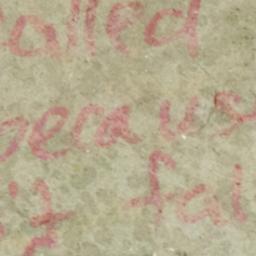 called
becaus
it fal